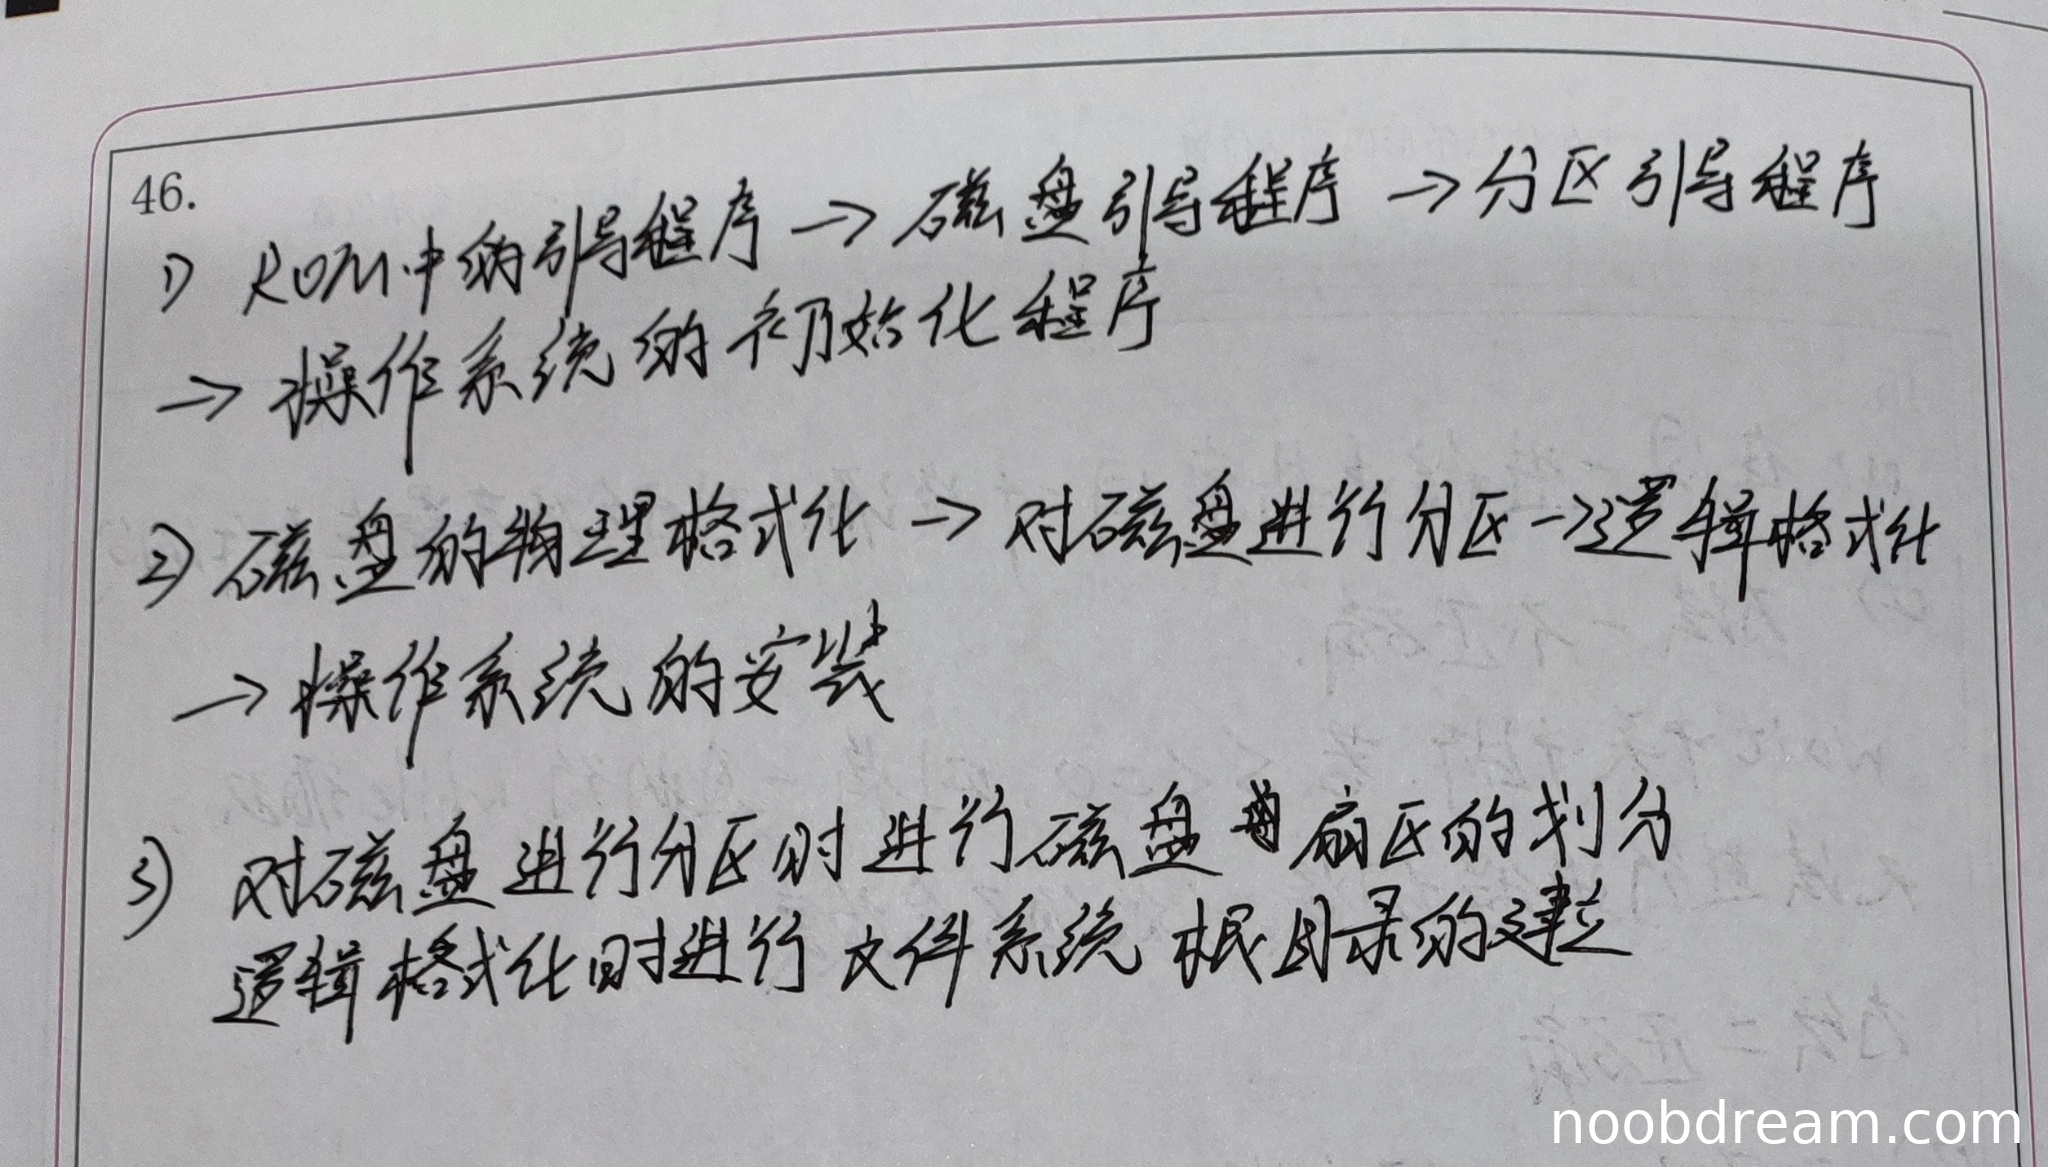 46.
1) ROM中的引导程序 → 磁盘引导程序 → 分区引导程序
→ 操作系统的初始化程序
2) 磁盘的物理格式化 → 对磁盘进行分区 → 逻辑格式化
→ 操作系统的安装
3) 对磁盘进行分区时进行磁盘扇区的划分
逻辑格式化时进行文件系统根目录的建立
noobdream.com